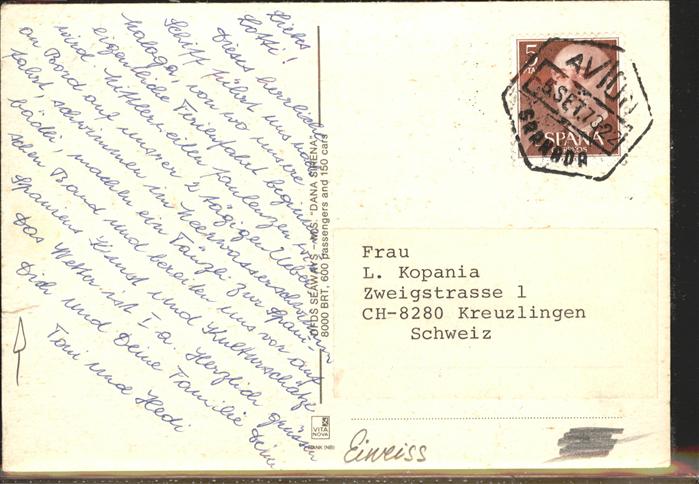 Liebe
Lotti!
Dieses herrliche
Schiff führt uns nach
Malaga, von wo unsere
eigentliche Ferienfahrt beginnt
wird. Mittlerweilen faulenzen wir
an Bord auf unserer 2 tägigen Über-
fahrt, schwimmen im Meerwasserschwimm-
bädli, machen ein Tänzli zur Spani-
schen Band und bereiten uns vor auf
Spaniens Kunst und Kulturschätze
Das Wetter ist I a. Herzlich grüssen
Dich und Deine Familie Deine
Toni und Hedi
DFDS SEAWAYS - M.S. "DANA SIRENA"
8000 BRT, 600 passengers and 150 cars
VITA
NOVA
5
AVION
5 SET. 73 22
ESPAÑA
Frau
L. Kopania
Zweigstrasse 1
CH-8280 Kreuzlingen
Schweiz
Eiweiss